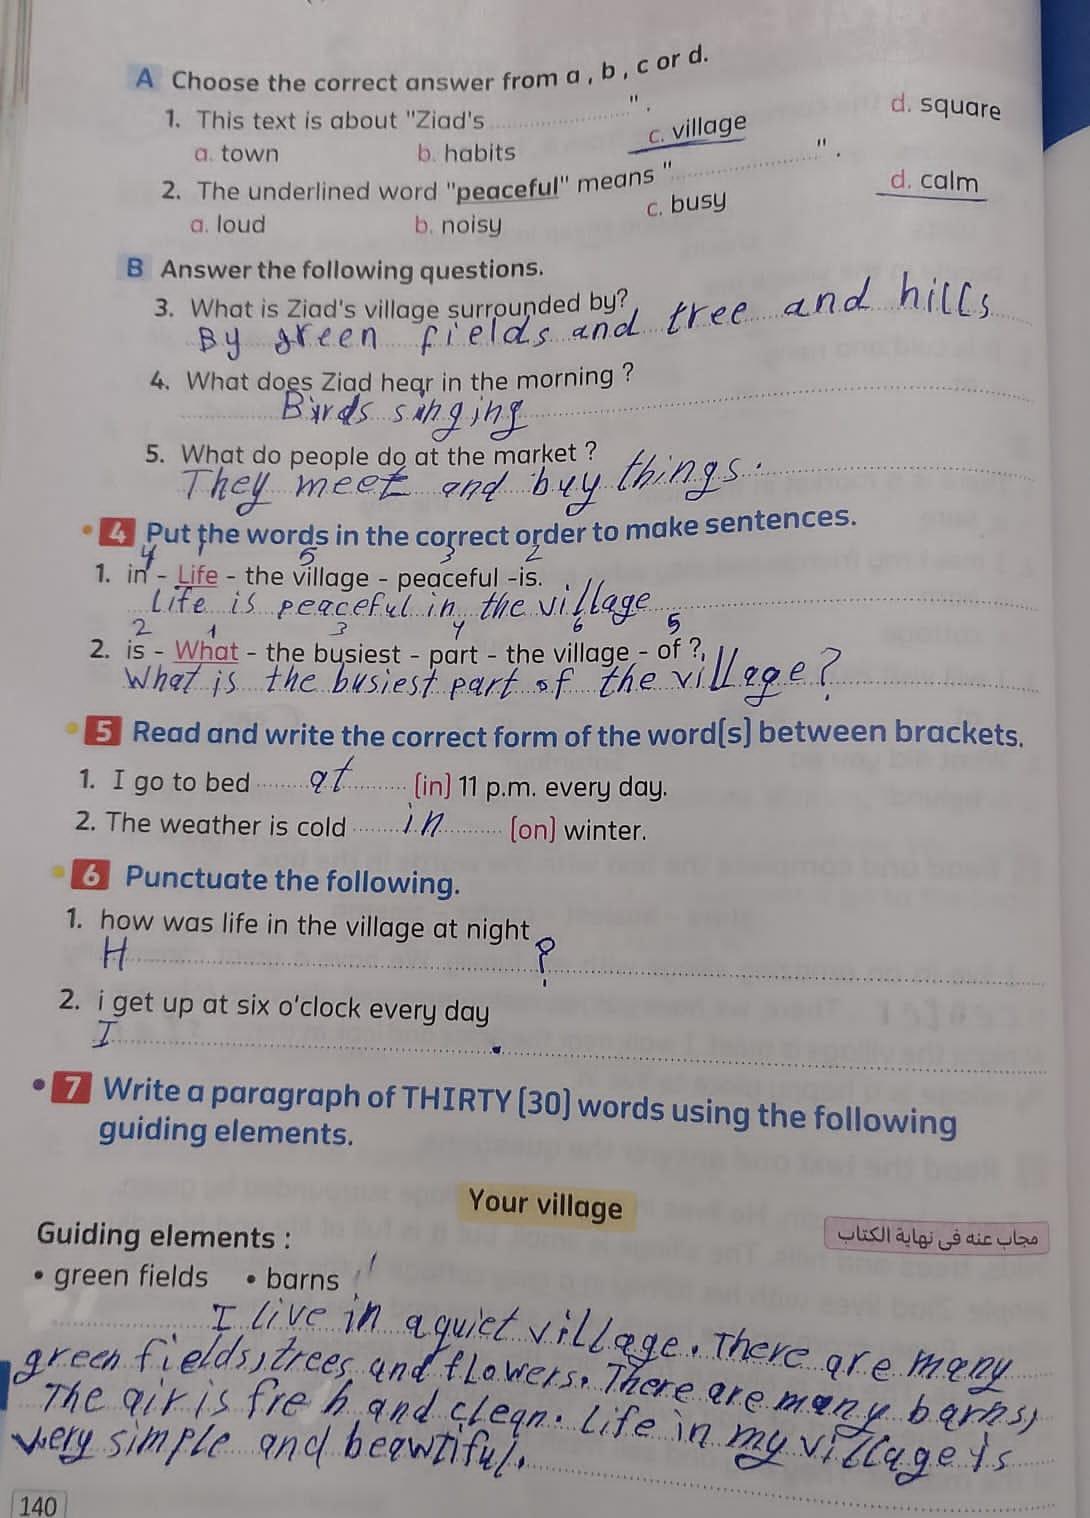 A Choose the correct answer from a , b , c or d.
1. This text is about "Ziad's ".
a. town b. habits c. village d. square
2. The underlined word "peaceful" means " ".
a. loud b. noisy c. busy d. calm
B Answer the following questions.
3. What is Ziad's village surrounded by?
By green fields and tree and hills
4. What does Ziad hear in the morning ?
Birds singing
5. What do people do at the market ?
They meet and buy things.
4 Put the words in the correct order to make sentences.
4 1 5 3 2
1. in - Life - the village - peaceful -is.
Life is peaceful in the village
2 1 3 4 6 5
2. is - What - the busiest - part - the village - of ?
What is the busiest part of the village?
5 Read and write the correct form of the word(s) between brackets.
1. I go to bed at (in) 11 p.m. every day.
2. The weather is cold in (on) winter.
6 Punctuate the following.
1. how was life in the village at night
H ?
2. i get up at six o'clock every day
I .
7 Write a paragraph of THIRTY (30) words using the following
guiding elements.
Your village
مجاب عنه في نهاية الكتاب
Guiding elements :
• green fields • barns
I live in a quiet village. There are many
green fields, trees and flowers. There are many barns,
The air is freh and clean. Life in my village is
very simple and beawtiful.
140